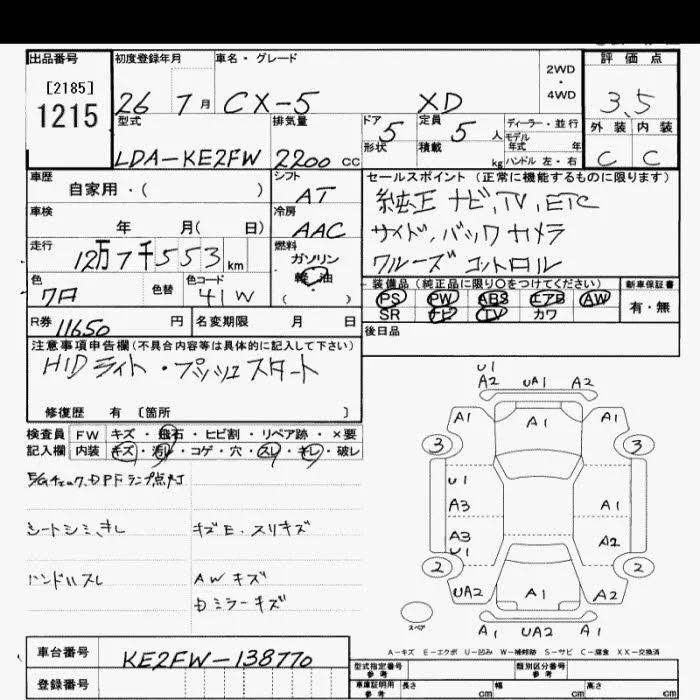 出品番号 初度登録年月 車名・グレード 評価点
[2185]
1215
26 7月 CX-5 XD 2WD・4WD 3.5
型式 排気量 ドア 定員 ディーラー・並行 外装 内装
5 5人 モデル年式 年
形状 積載 kg ハンドル 左・右
LDA-KE2FW 2200 CC C C
車歴 シフト セールスポイント(正常に機能するものに限ります)
自家用・( ) AT 純正 ナビ,TV,ETC
車検 冷房 サイド,バックカメラ
年 月( 日) AAC クルーズコントロール
走行 燃料
12万7千553km ガソリン
軽油
( )
色 色替 色コード 装備品(純正品に限り○をつけてください) 新車保証書
クロ 41W PS PW ABS エアB AW 有・無
SR ナビ TV カワ
R券 11650円 名変期限 月 日 後日品
注意事項申告欄(不具合内容等は具体的に記入して下さい)
HIDライト・プッシュスタート
修復歴 有 [箇所 ]
検査員 FW キズ・飛石・ヒビ割・リペア跡・×要
記入欄 内装 キズ・汚レ・コゲ・穴・スレ・キレ・破レ
DPFランプ点灯
シートシミ、キレ キズE・スリキズ
ハンドルスレ AWキズ
ミラーキズ
U1
A2 UA1 A2
A1 A1 A1
3 3
U1
A3 A1
A3 A2
U1
2 2
UA2 A1 A2
スペア A1 UA2 A1
A-キズ E-エクボ U-凹み W-補修跡 S-サビ C-腐食 XX-交換済
車台番号 KE2FW-138770
登録番号
型式指定番号 参考 類別区分番号 参考
車庫証明用 参考 長さ cm 幅 cm 高さ cm